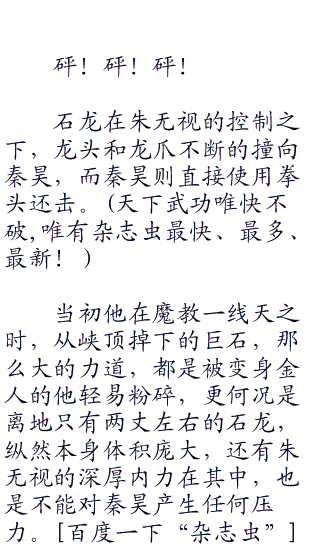 砰！砰！砰！
石龙在朱无视的控制之
下，龙头和龙爪不断的撞向
秦昊，而秦昊则直接使用拳
头还击。(天下武功唯快不
破,唯有杂志虫最快、最多、
最新！)
当初他在魔教一线天之
时，从峡顶掉下的巨石，那
么大的力道，都是被变身金
人的他轻易粉碎，更何况是
离地只有两丈左右的石龙，
纵然本身体积庞大，还有朱
无视的深厚内力在其中，也
是不能对秦昊产生任何压
力。[百度一下“杂志虫”]